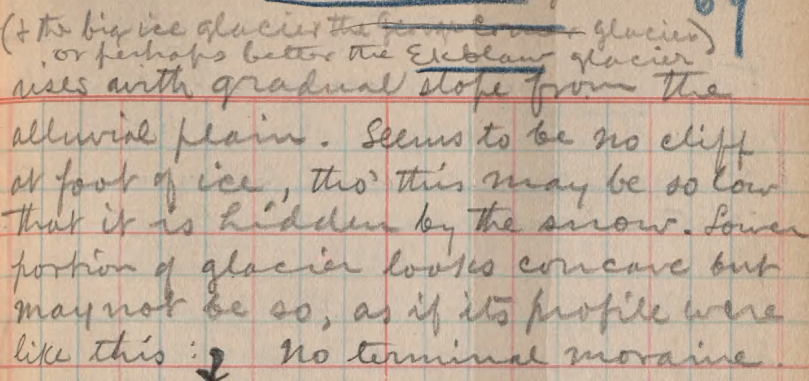 (& the big ice glacier the glacier)
or perhaps better the Ekblaw glacier
rises with gradual slope from the
alluvial plain. Seems to be no cliff
at foot of ice, tho' this may be so low
that it is hidden by the snow. Lower
portion of glacier looks concave but
may not be so, as if its profile were
like this: No terminal moraine.